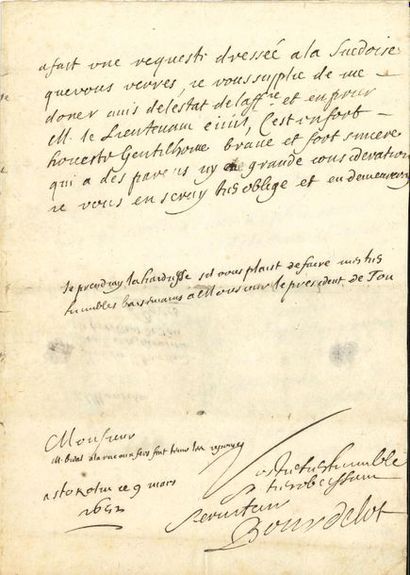 a fait une requeste dressée a la Suedoise
que vous verres, je vous suplie de me
doner avis de lestat de laff.re et en
M. le Lieutenant civil, C'est un fort
honeste Gentilhome brave et fort sincere
qui a des parens icy de grande consideration
je vous en seray tres oblige et en demeureray
Je prendray la hardiesse sil vous plaist de faire mes tres
humbles baisemains a Monsieur le president de Tou
Monsieur
M.
a stokolm ce 9 mars
Vostre tres humble
tres obeissant
serviteur
Bourdelot